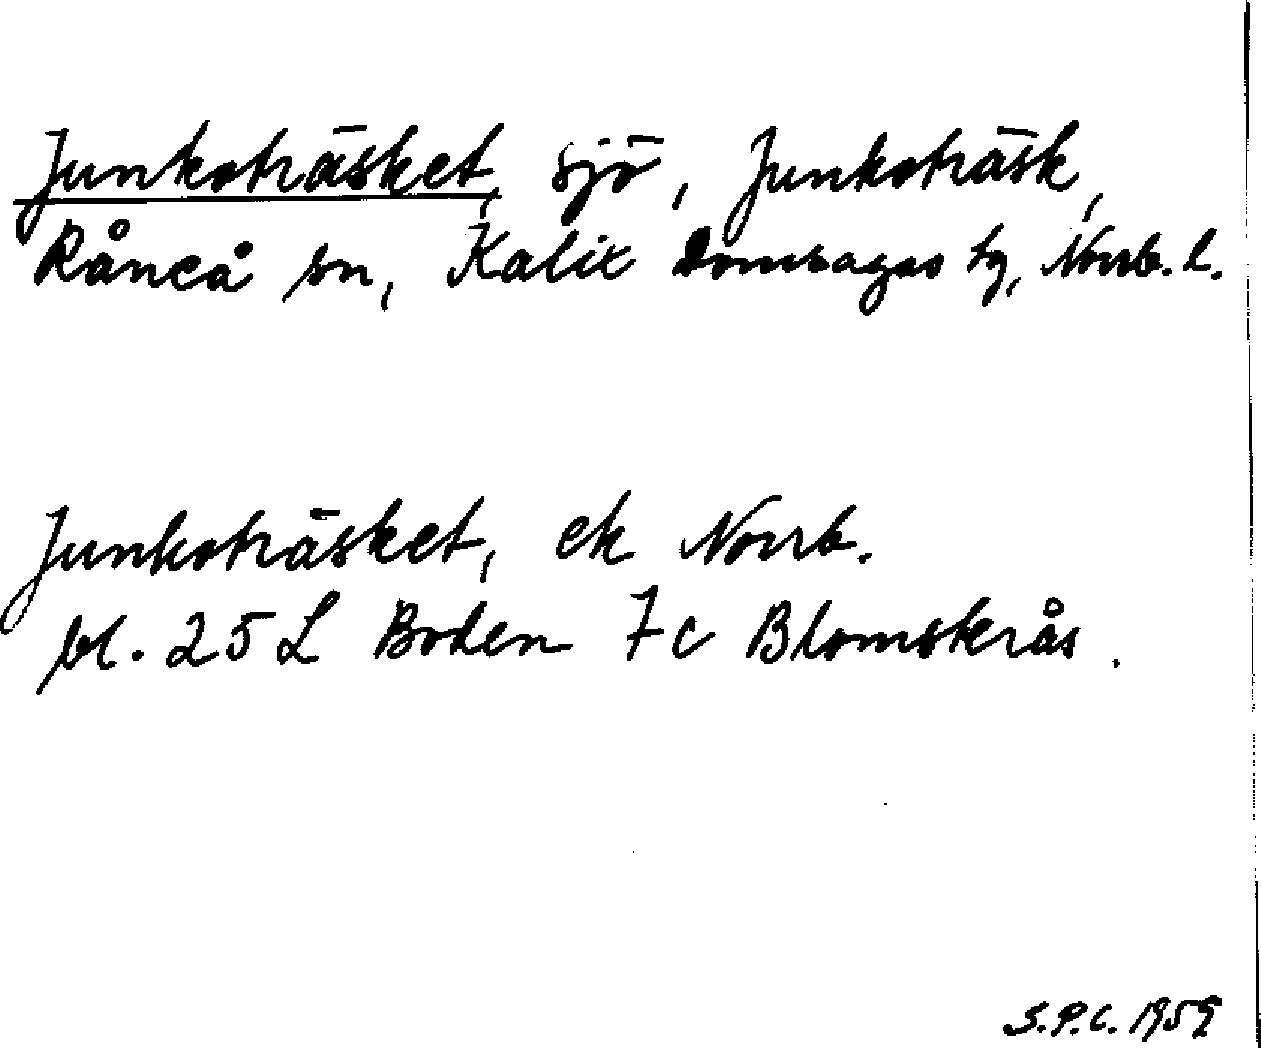 Junkoträsket, sjö, Junkoträsk,
Råneå sn, Kalix Domsagas tg, Norrb. l.
Junkoträsket, ek Norrb.
bl. 25 L Boden 7c Blomskrås.
S.P.C. 1959